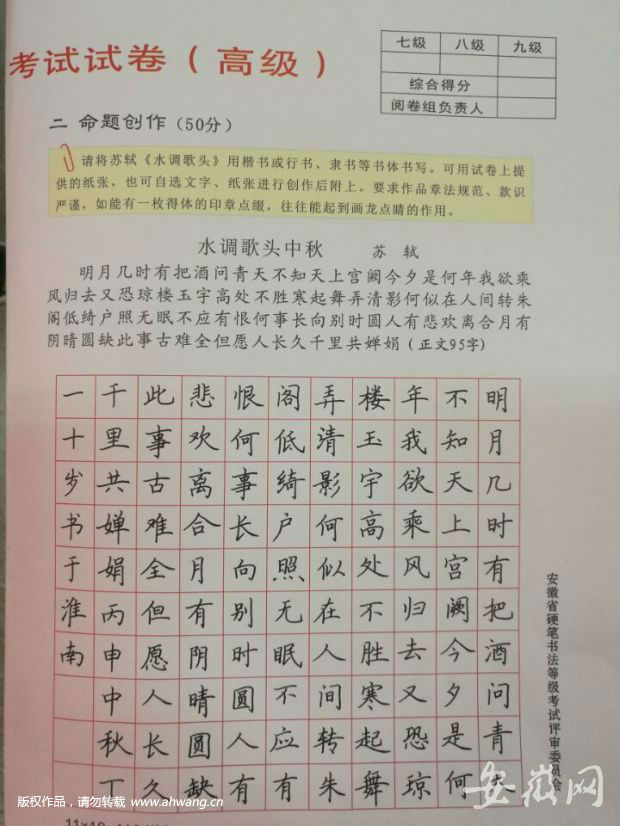 考试试卷（高级）
七级 八级 九级
综合得分
阅卷组负责人
二 命题创作（50分）
请将苏轼《水调歌头》用楷书或行书、隶书等书体书写。可用试卷上提
供的纸张，也可自选文字、纸张进行创作后附上。要求作品章法规范、款识
严谨，如能有一枚得体的印章点缀，往往能起到画龙点睛的作用。
水调歌头中秋 苏轼
明月几时有把酒问青天不知天上宫阙今夕是何年我欲乘
风归去又恐琼楼玉宇高处不胜寒起舞弄清影何似在人间转朱
阁低绮户照无眠不应有恨何事长向别时圆人有悲欢离合月有
阴晴圆缺此事古难全但愿人长久千里共婵娟（正文95字）
明月几时有把酒问青天
不知天上宫阙今夕是何
年我欲乘风归去又恐琼
楼玉宇高处不胜寒起舞
弄清影何似在人间转朱
阁低绮户照无眠不应有
恨何事长向别时圆人有
悲欢离合月有阴晴圆缺
此事古难全但愿人长久
千里共婵娟丙申中秋丁
一十岁书于淮南
安徽省硬笔书法等级考试评审委员会
版权作品，请勿转载 www.ahwang.cn
安徽网